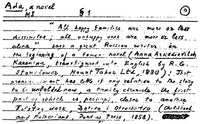 Ada, a novel
§ 1
"All happy families are more or less
dissimilar; all unhappy ones are more or less
alike" says a great Russian writer in the
beginning of a famous novel (Anna Arkadievitch
Karenina, transfigured into English by R. G.
Stonelower, Mount Tabor Ltd., 1880). That
has little if any relation to the story
to be unfolded now, a family chronicle, the first
part of which is, perhaps, closer to another
Tolstoy work,